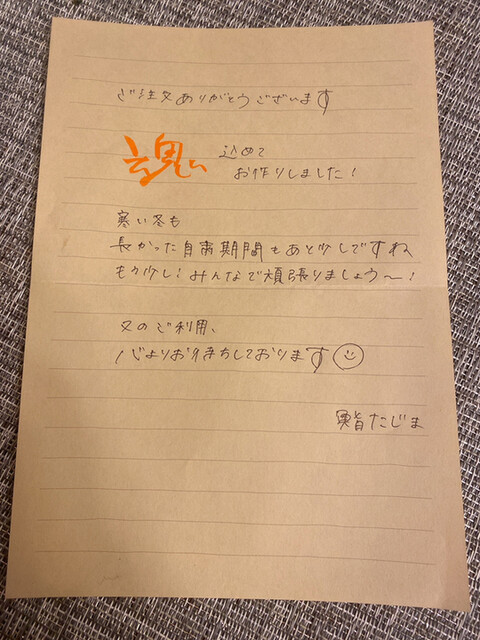 ご注文ありがとうございます
魂い込めて
お作りしました!
寒い冬も
長かった自粛期間もあと少しですね
もう少し!みんなで頑張りましょう〜!
又のご利用、
心よりお待ちしております
鮨たじま